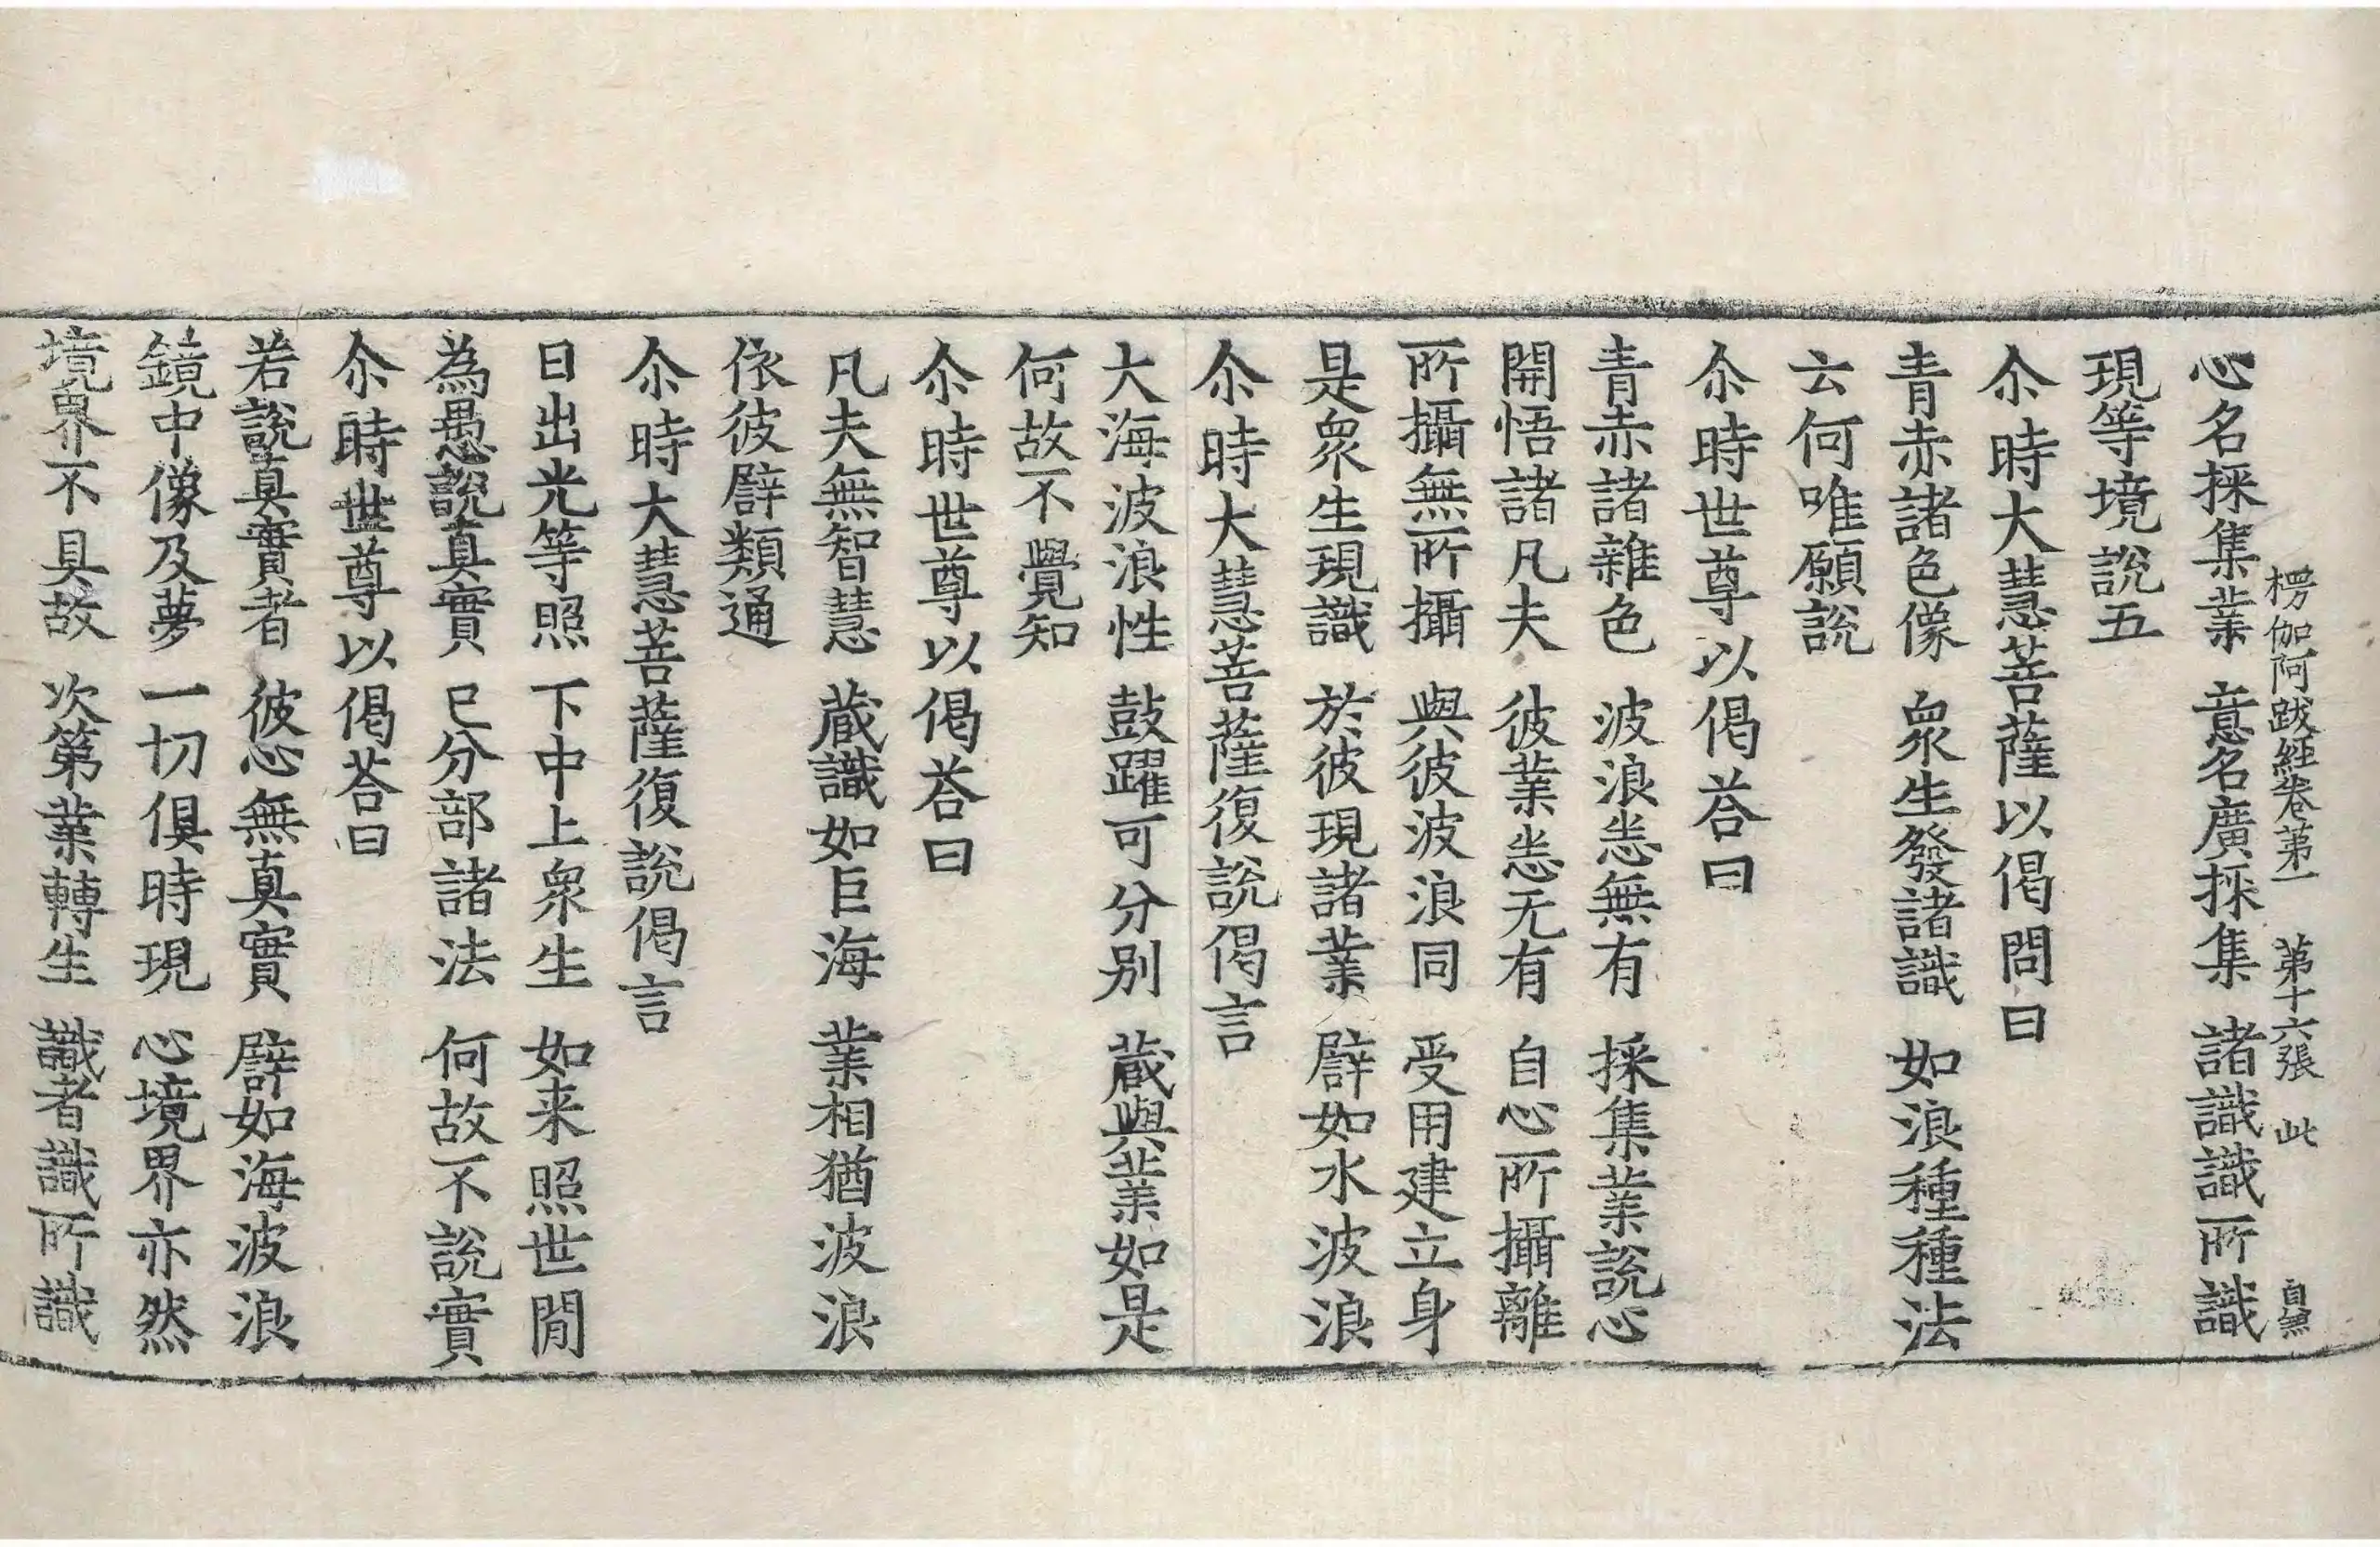 楞伽阿跋經卷第一　第十六張　此　自無
心名採集業　意名廣採集　諸識識所識
現等境說五
尒時大慧菩薩以偈問曰
青赤諸色像　衆生發諸識　如浪種種法
云何唯願說
尒時世尊以偈荅曰
青赤諸雜色　波浪悉無有　採集業說心
開悟諸凡夫　彼業悉无有　自心所攝離
所攝無所攝　與彼波浪同　受用建立身
是衆生現識　於彼現諸業　譬如水波浪
尒時大慧菩薩復說偈言
大海波浪性　鼓躍可分別　藏與業如是
何故不覺知
尒時世尊以偈荅曰
凡夫無智慧　藏識如巨海　業相猶波浪
依彼譬類通
尒時大慧菩薩復說偈言
日出光等照　下中上衆生　如来照世閒
為愚說真實　已分部諸法　何故不說實
尒時世尊以偈荅曰
若說真實者　彼心無真實　譬如海波浪
鏡中像及夢　一切俱時現　心境界亦然
境界不具故　次第業轉生　識者識所識